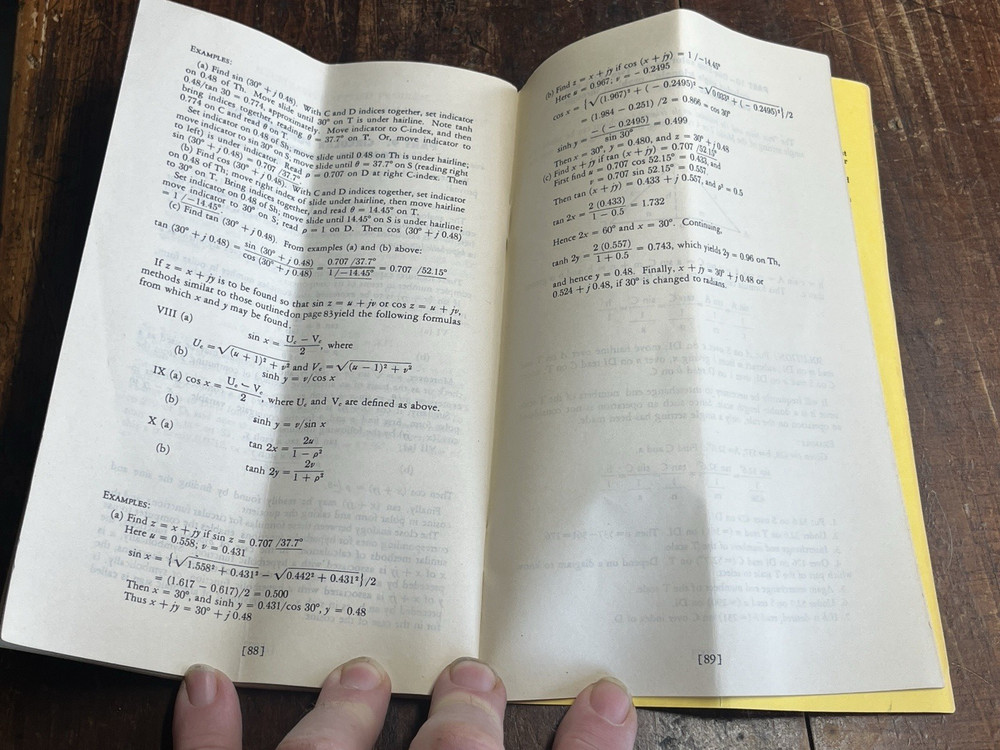 EXAMPLES:
(a) Find sin (30° + j 0.48). With C and D indices together, set indicator
on 0.48 of Th. Move slide until 30° on T is under hairline. Note tanh
0.48/tan 30 = 0.774, approximately. Move indicator to C-index, and then
bring indices together, reading θ = 37.7° on T. Or, move indicator to
0.774 on C and read θ on T.
Set indicator on 0.48 of Sh; move slide until 0.48 on Th is under hairline;
move indicator to sin 30° on S; move slide until θ = 37.7° on S (reading right
to left) is under indicator. Read ρ = 0.707 on D at right C-index. Then
sin (30° + j 0.48) = 0.707 /37.7°
(b) Find cos (30° + j 0.48). With C and D indices together, set indicator
on 0.48 of Th; move right index of slide under hairline, then move hairline
to 30° on T. Bring indices together, and read θ = 14.45° on T.
Set indicator on 0.48 of Sh; move slide until 14.45° on S is under hairline;
move indicator to 30° on S; read ρ = 1 on D. Then cos (30° + j 0.48)
= 1/−14.45°.
(c) Find tan (30° + j 0.48). From examples (a) and (b) above:
tan (30° + j 0.48) = sin (30° + j 0.48) / cos (30° + j 0.48) = 0.707 /37.7° / 1/−14.45° = 0.707 /52.15°
If z = x + jy is to be found so that sin z = u + jv or cos z = u + jv,
methods similar to those outlined on page 83 yield the following formulas
from which x and y may be found.
VIII (a) sin x = (U_c − V_c) / 2, where
U_c = √(u + 1)² + v² and V_c = √(u − 1)² + v²
(b) sinh y = v/cos x
IX (a) cos x = (U_c − V_c) / 2, where U_c and V_c are defined as above.
(b) sinh y = v/sin x
X (a) tan 2x = 2u / (1 − ρ²)
(b) tanh 2y = 2v / (1 + ρ²)
EXAMPLES:
(a) Find z = x + jy if sin z = 0.707 /37.7°
Here u = 0.558; v = 0.431
sin x = {√1.558² + 0.431² − √0.442² + 0.431²}/2
= (1.617 − 0.617)/2 = 0.500
Then x = 30°, and sinh y = 0.431/cos 30°, y = 0.48
Thus x + jy = 30° + j 0.48
[88]
(b) Find z = x + jy if cos (x + jy) = 1/−14.45°
Here u = 0.967; v = − 0.2495
cos x = {√(1.967)² + (− 0.2495)² − √0.033² + (− 0.2495)²}/2
= (1.984 − 0.251) /2 = 0.866 = cos 30°
sinh y = −(− 0.2495) / sin 30° = 0.499
Then x = 30°, y = 0.480, and z = 30° + j 0.48
(c) Find x + jy if tan (x + jy) = 0.707 /52.15°
First find u = 0.707 cos 52.15° = 0.433, and
v = 0.707 sin 52.15° = 0.557.
Then tan (x + jy) = 0.433 + j 0.557, and ρ² = 0.5
tan 2x = 2 (0.433) / (1 − 0.5) = 1.732
Hence 2x = 60° and x = 30°. Continuing,
tanh 2y = 2 (0.557) / (1 + 0.5) = 0.743, which yields 2y = 0.96 on Th,
and hence y = 0.48. Finally, x + jy = 30° + j 0.48 or
0.524 + j 0.48, if 30° is changed to radians.
[89]